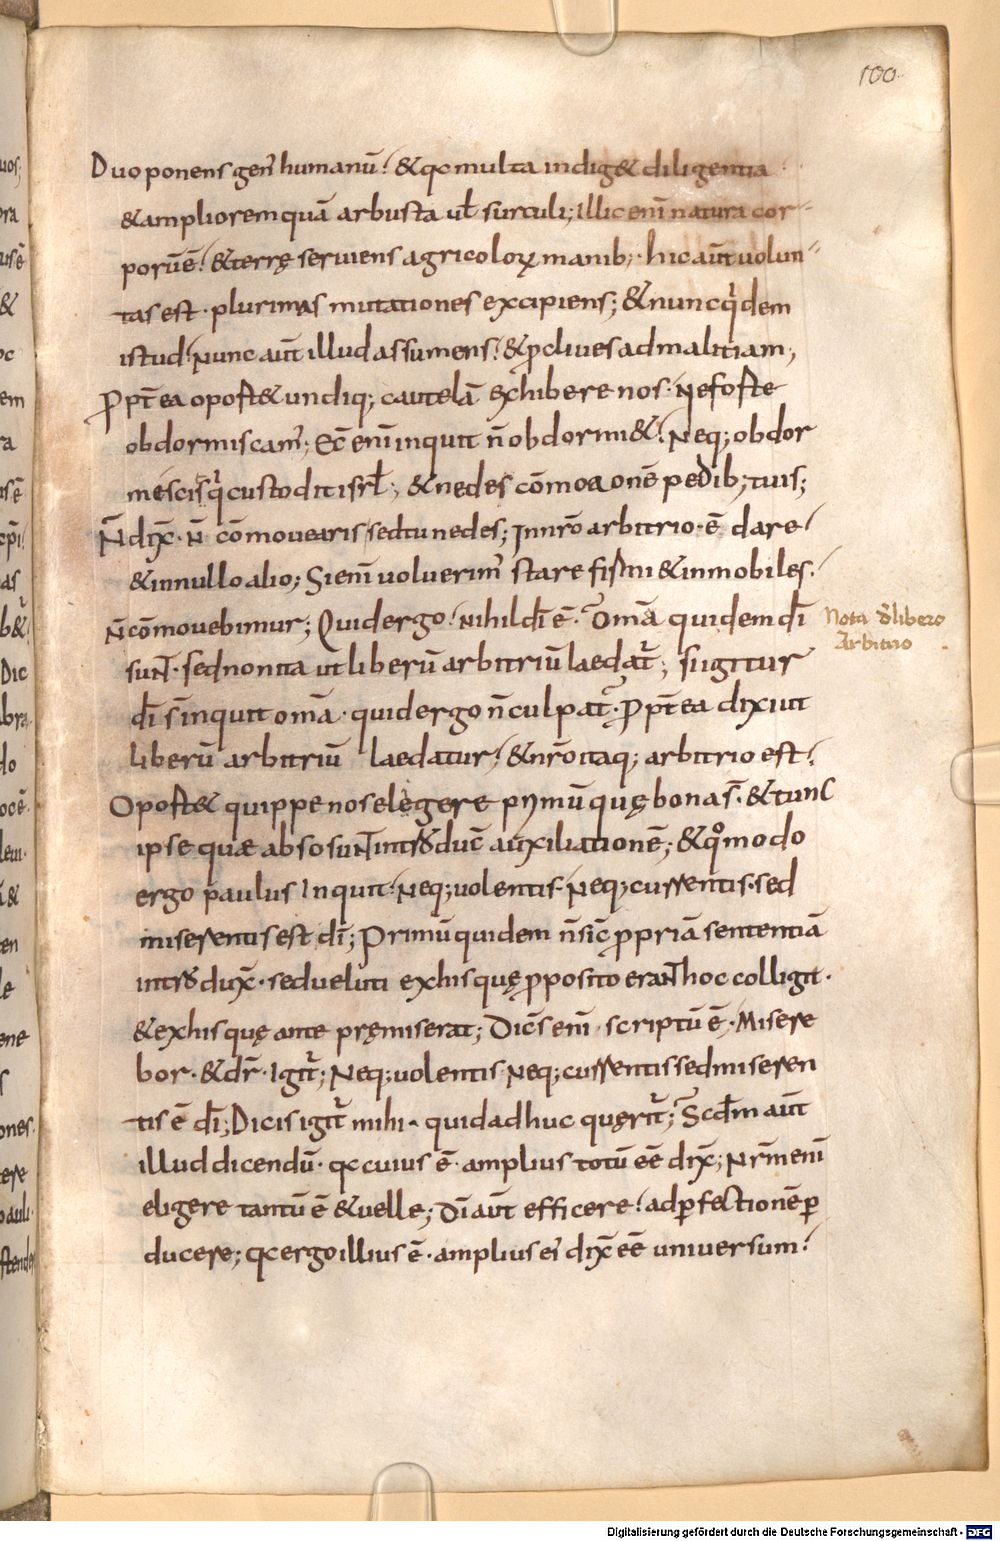 100.
Duo ponens gen̄ humanū. &qc multa indig& diligentia
&ampliorem quā arbusta ut surculi; illic enī natura cor-
porūē. &terrę seruiens agricoloꝝ manib; hic aūt uolun-
tas est. plurimas mutationes excipiens; &nunc qͥdem
istud. Nunc aūt illud assumens. &ꝓcliues ad malitiam;
Ꝓpt̄ea oport& undiq; cautelā exhibere nos. Ne forte
obdormiscam᷒; Ec̄ enī inquit n̄ obdormi&. Neq; obdor
mescis qͥ custodit isrl̄; &nedes cōmoaonē pedib; tuis;
N̄ dix̄. N̄ cōmouearis sed tu nedes; In nr̄o arbitrio ē dare
&in nullo alio; Si enī uoluerim᷒ stare firmi &inmobiles.
N̄ cōmouebimur; Quid ergo. Nihil dī ē. Omā quidem dī
suNT. sed non ita ut liberū arbitriū laedat᷑; si igitur
dī s̄ inquit omā. quid ergo n̄ culpat᷑. Ꝓpt̄ea dixit
liberū arbitriū laedatur. &nr̄o itaq; arbitrio est.
Oport& quippe nos elegere pⁱmū quę bona s̄. &tunc
ipse quae ab so suNT intʳodūc auxiliationē; &qͦmodo
ergo paulus inquit. Neq; uolentis. Neq; currentis. sed
miserentis est dī; Primū quidem n̄ sic̄ ꝓpriā sententiā
intʳodux̄. sed ueluti ex his quę ꝓposito eraNT hoc colligit.
&ex his quę ante pręmiserat; Dicēs enī. scriptū ē. Misere
bor. &dr̄. Igit᷑; Neq; uolentis Neq; currentis sed miseren
tis ē dī; Dicis igit᷑ mihi. quid adhuc quęrit᷑; Scd̄m aūt
illud dicendū. qc cuius ē. amplius totū eē dix̄; Nr̄m enī
eligere tantū ē &uelle; Dī aūt efficere. ad ꝑfectionē ꝑ
ducere; qc ergo illius ē. amplius ei᷒ dix̄ eē uniuersum.
Nota d̄ libero
Arbitrio
Digitalisierung gefördert durch die Deutsche Forschungsgemeinschaft - DFG